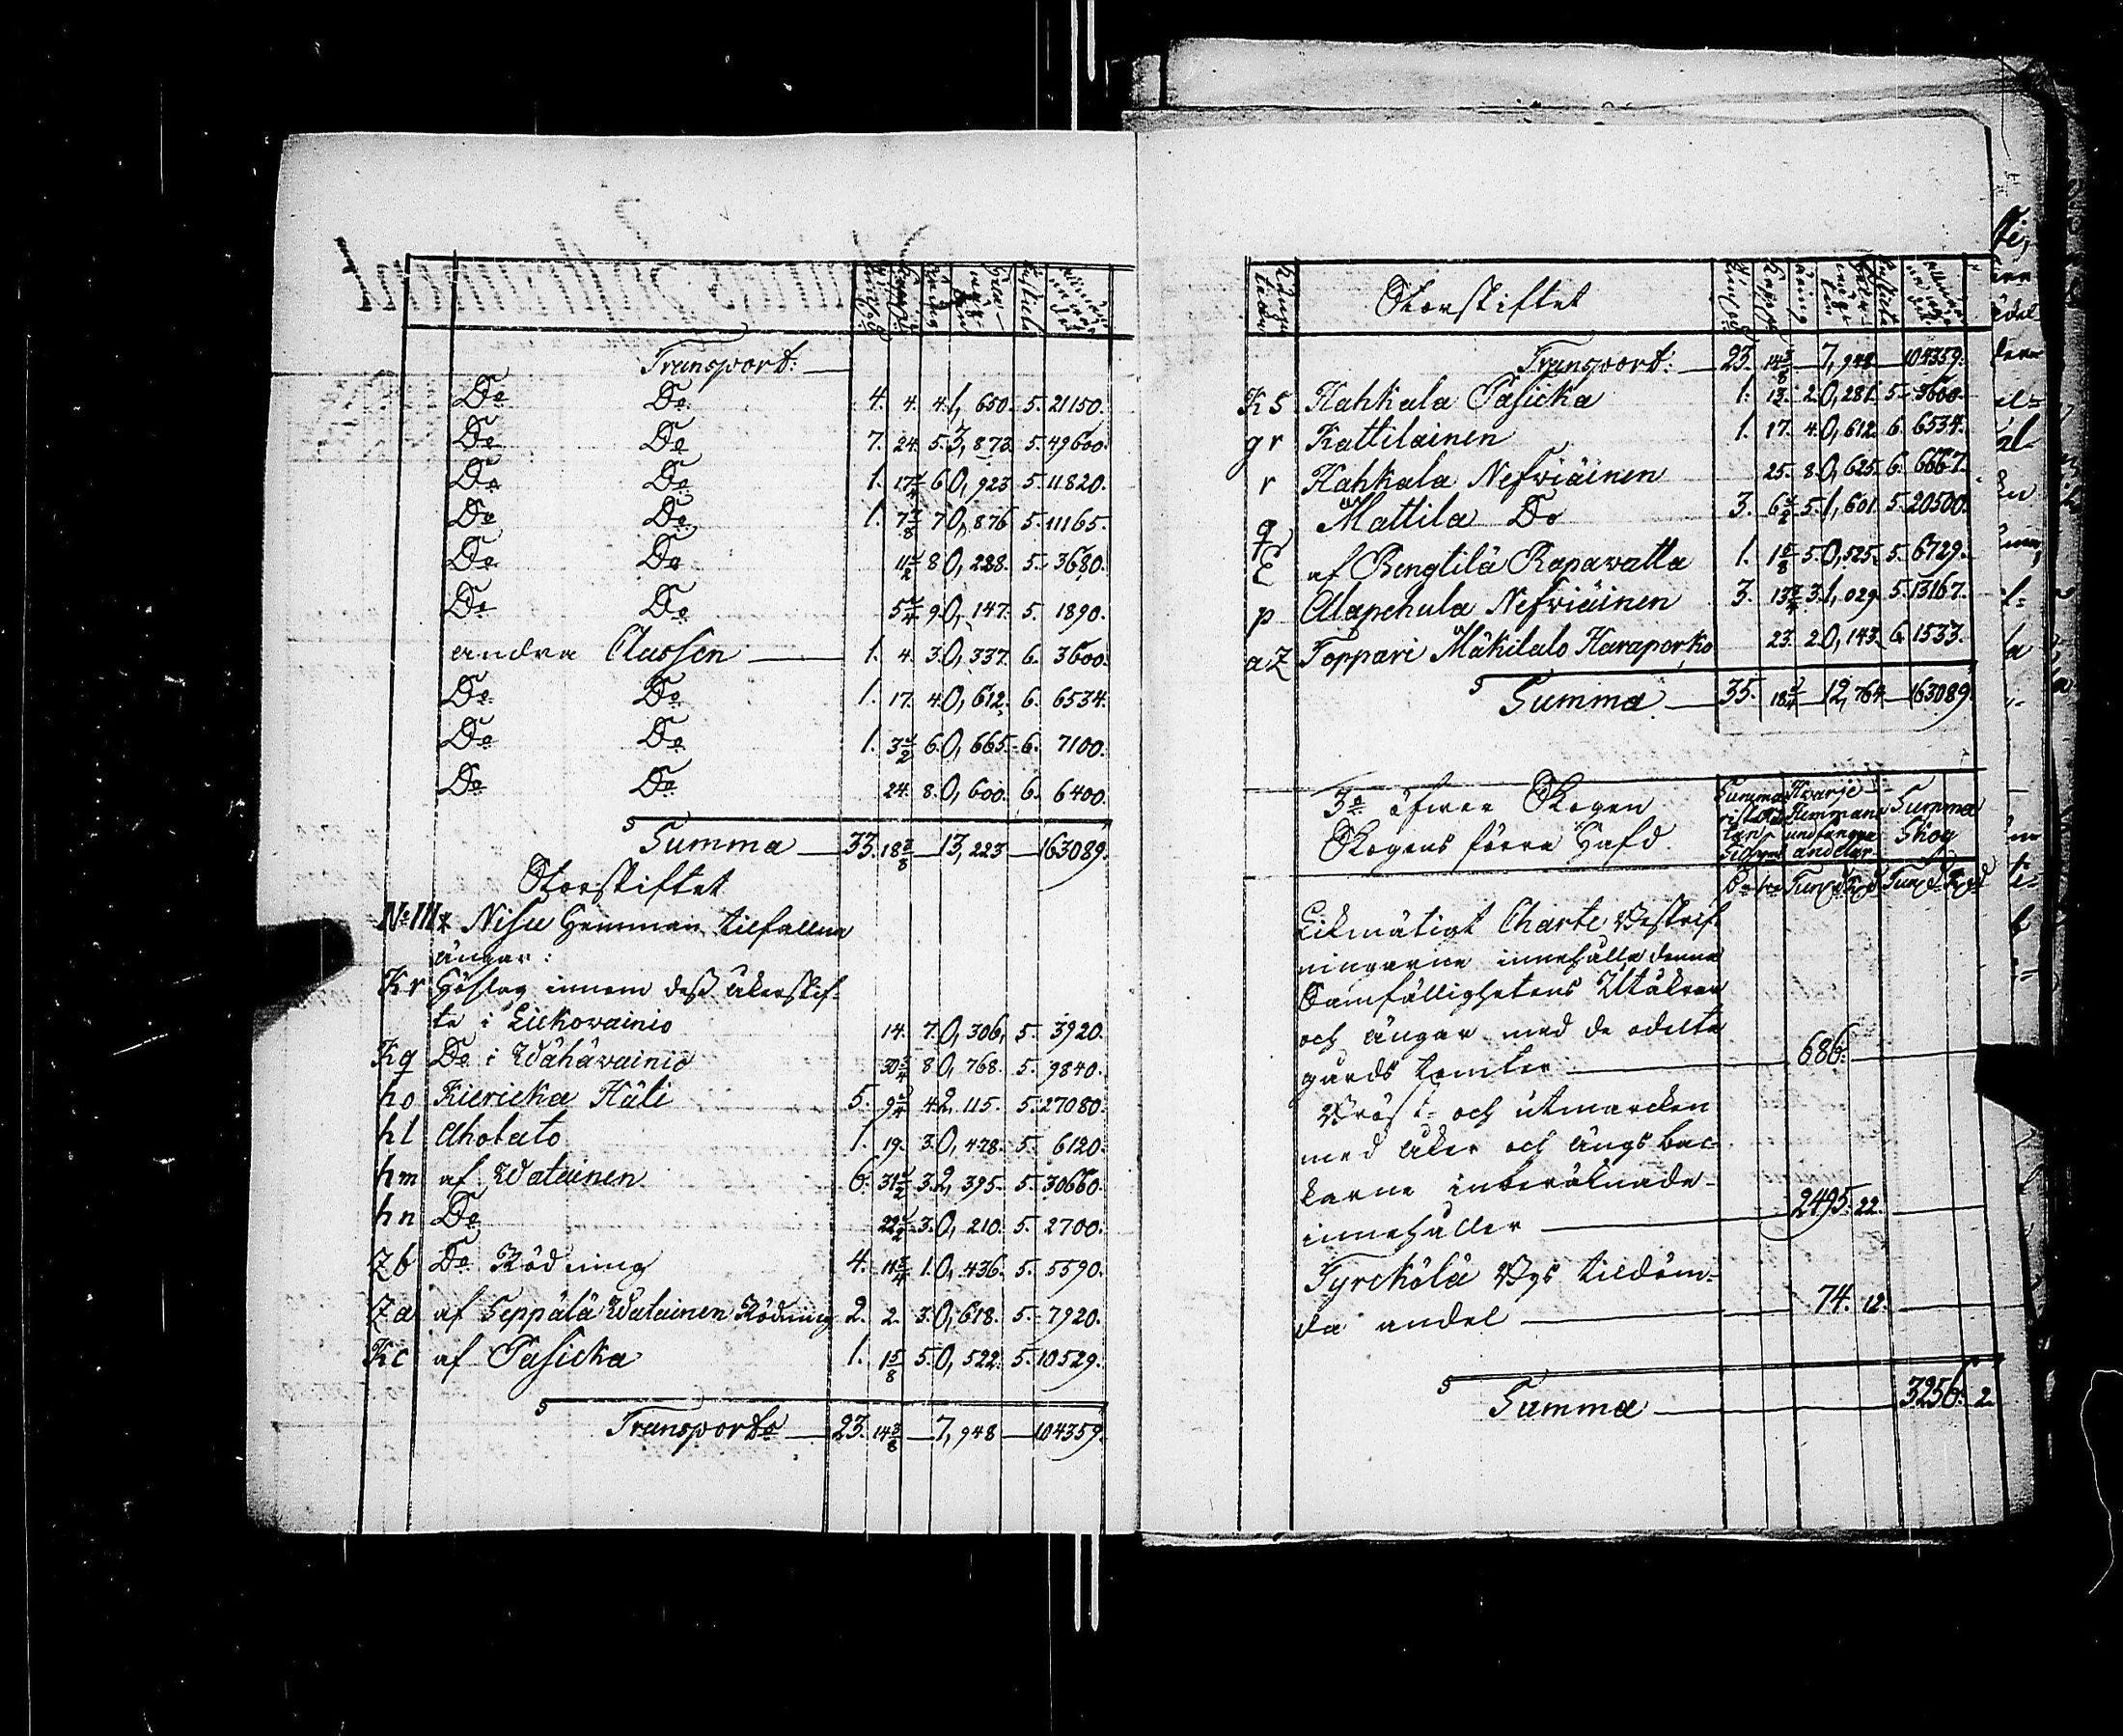 Transport:
Do Do 4. 4. 4. 1, 650. 5. 21150.
Do Do 7. 24. 5. 3, 873. 5. 49600.
Do Do 1. 17 1/4 6 0, 923 5. 11820.
Do Do 1. 7 7/8 7 0, 876 5. 11165.
Do Do 11 1/2 8 0, 288. 5. 3680.
Do Do 5 1/4 9 0, 147. 5. 1890.
andra Classen 1. 4. 3. 0, 337. 6. 3600.
Do Do 1. 17. 4. 0, 612. 6. 6534.
Do Do 1. 3 1/2 6. 0, 665. 6. 7100.
Do Do 24. 8. 0, 600. 6. 6400.
Summa 33. 18 3/8 13, 223 163089.
Storskiftet
No III * Nisu Hemman tilfallne
ängar:
Kr Höslag innom dess åkerskif-
te i Liekovainio 14. 7. 0, 306, 5. 3920.
Kq Do i Wähävainio 30 3/4 8 0, 768. 5. 9840.
ho Kiericka Käli 5. 9 1/4 4. 2, 115. 5. 27080.
hl Aholato 1. 19. 3. 0, 478. 5. 6120.
hm af Watainen 6. 31 1/2 3. 2, 395. 5. 30660.
hn Do 22 1/2 3. 0, 210. 5. 2700.
Zb Do Rödning 4. 11 3/4 1. 0, 436. 5. 5590.
Za af Seppälä Watainen Rödning 2. 2. 3. 0, 618. 5. 7920.
Kc af Pasicka 1. 1 5/8 5. 0, 522. 5. 10529.
Transporte 23. 14 3/8 7, 948 104359.
Storskiftet
Transport: 23. 14 3/8 7, 948 104359.
Ks Hahkala Pasicka 1. 13 1/2 2. 0, 281. 5. 3600.
gr Kattilainen 1. 17. 4. 0, 612. 6. 6534.
r Hahkala Nefviäinen 25. 8. 0, 625. 6. 6667.
q Mattila Do 3. 6 1/2 5. 1, 601. 5. 20500.
E af Bengtilä Rapavatta 1. 1 5/8 5. 0, 525. 5. 6729.
p Alapehula Nefviäinen 3. 13 3/4 3. 1, 029. 5. 13167.
az Toppari Mäkilato Haraporko 23. 2. 0, 143. 6. 1533.
Summa 35. 18 1/4 12, 764 163089.
3o öfver Skogen
Skogens förra Häfd.
Summa Hvarje Summa
Hemmans
undfångna Skog
andelar
Tun: Kd Tun: Kd
Likmätigt Charte Beskrif-
ningarne innehålla denna
Samfällighetens Utåkrar
och ängar med de odelta
gårds tomter 686.
Bröst- och utmarcken
med åker och ängs bac-
karne inberäknade
innehåller 2495. 22.
Tyrckölä Bys tildöm-
da andel 74. 12.
Summa 3256. 2.